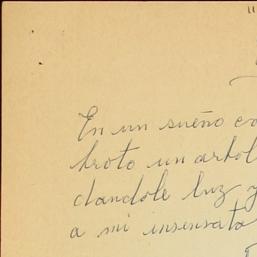 En un sueño
broto un arbol
dandole luz y
a mi insensata